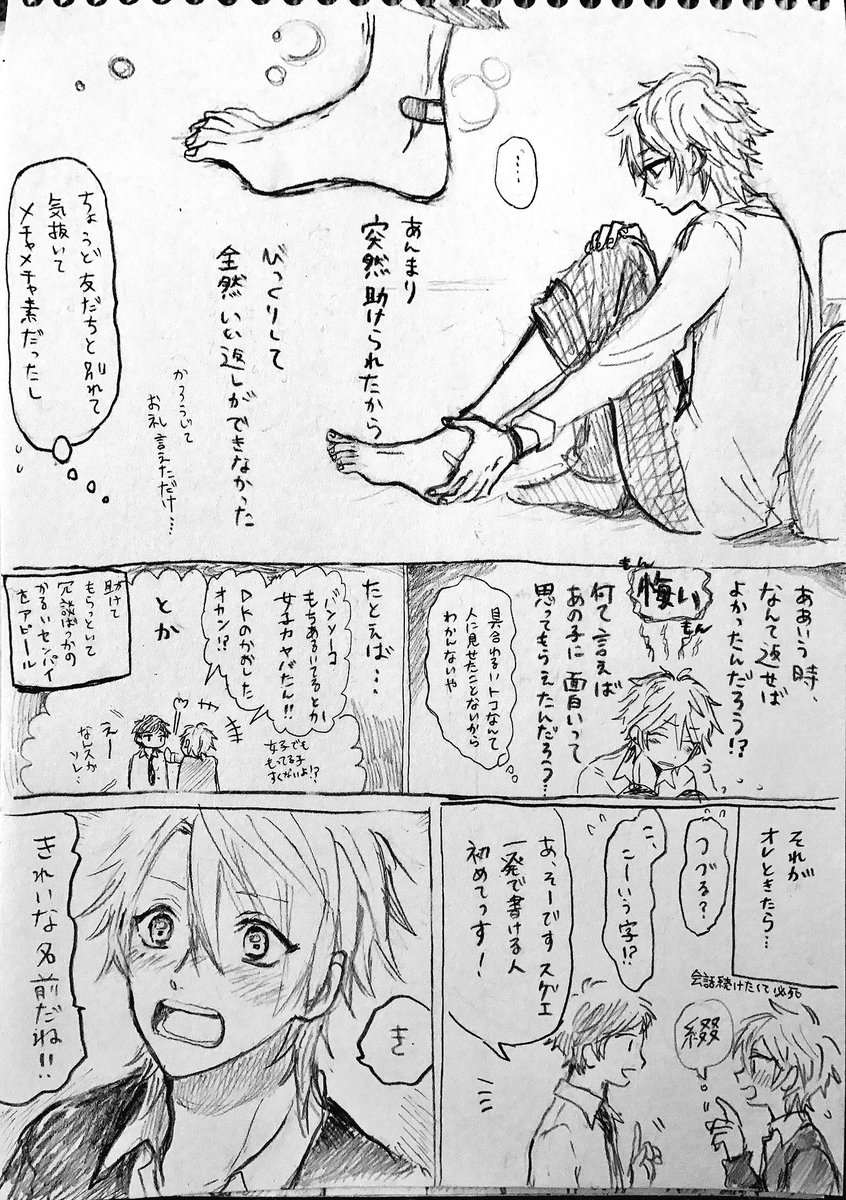 ……
あんまり
突然助けられたから
びっくりして
全然いい返しができなかった
かろうじて
お礼言えただけ…
ちょうど友だちと別れて
気抜いて
メチャメチャ素だったし
ああいう時、
なんて返せば
よかったんだろう!?
もん
悔い
もん
何て言えば
あの子に面白いって
思ってもらえたんだろう…
具合わるいトコなんて
人に見せたことないから
わかんないや
たとえば…
バンソーコ
もちあるいてるとか
女子力ヤバたん!!
DKのかおした
オカン!?
とか
女子でも
もってる子
すくないよ!?
えー
なんスか
ソレ…
助けて
もらっといて
冗談ばっかの
かるいセンパイ
をアピール
それが
オレときたら…
つづる?
こ、
こーいう字!?
会話続けたくて必死
綴
あ、そーです スゲエ
一発で書ける人
初めてっす!
き
きれいな名前だね!!